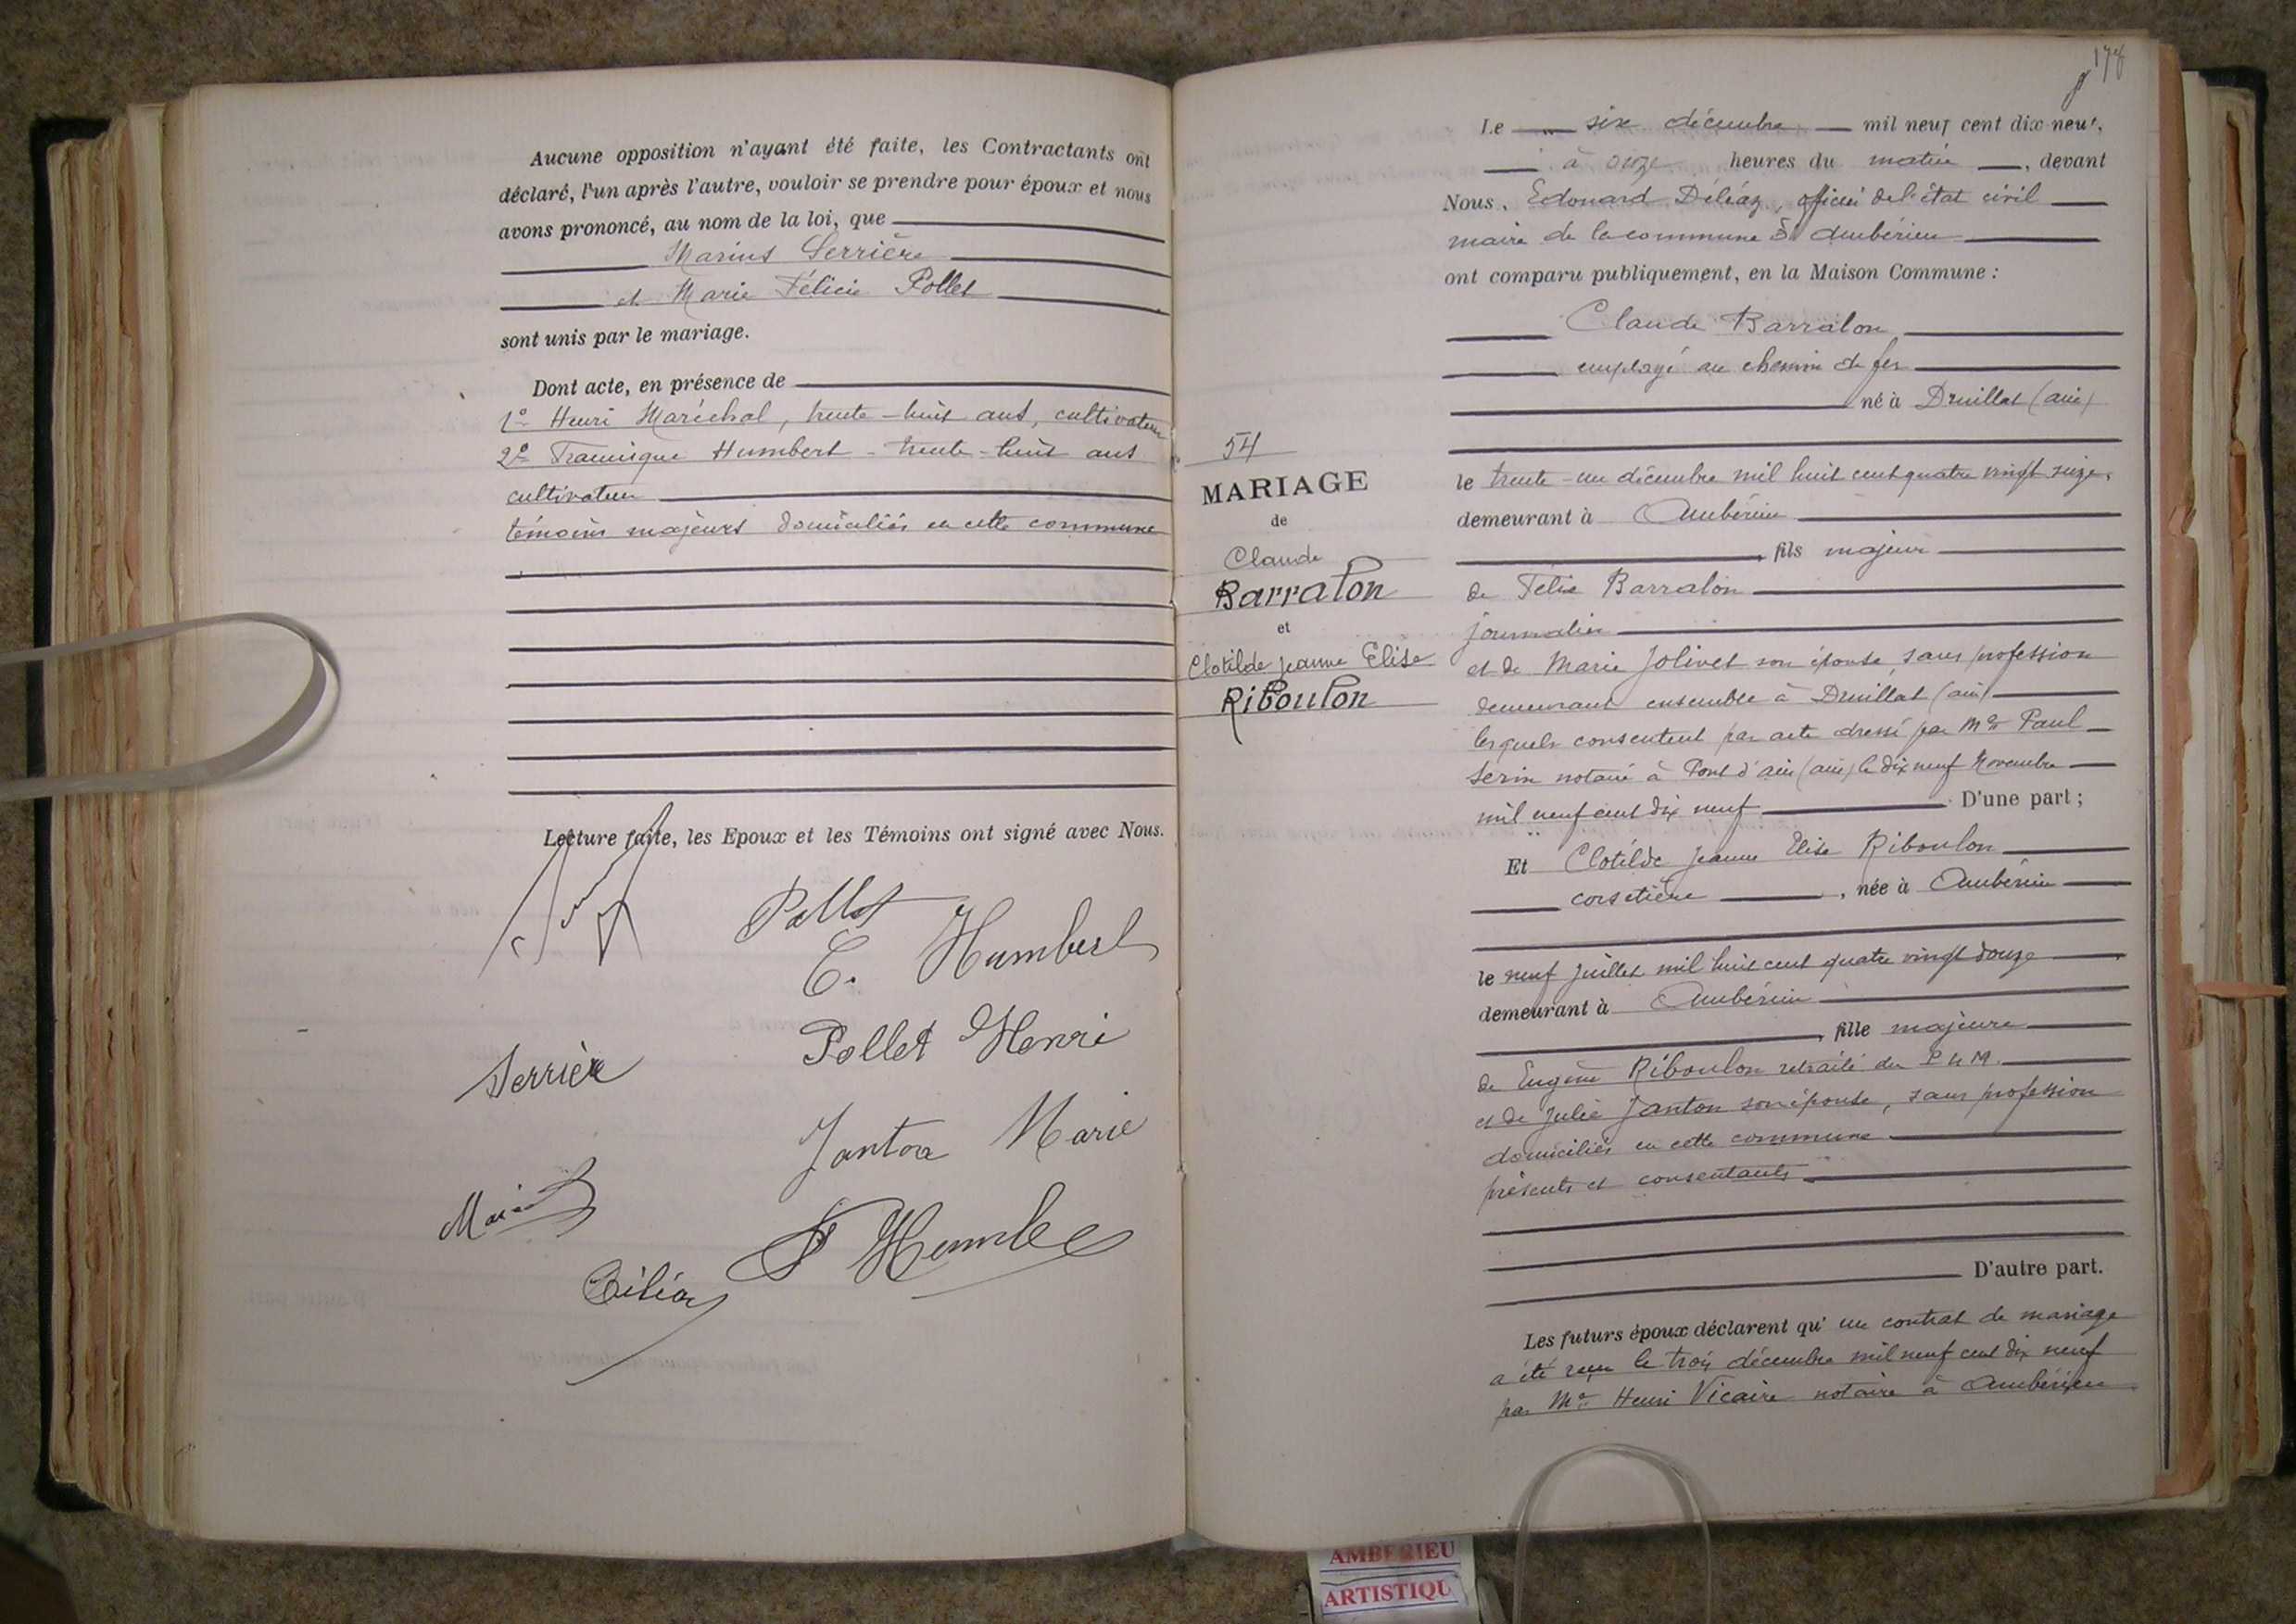 Aucune opposition n'ayant été faite, les Contractants ont
déclaré, l'un après l'autre, vouloir se prendre pour époux et nous
avons prononcé, au nom de la loi, que
Marius Serrière
et Marie Félicie Pollet
sont unis par le mariage.
Dont acte, en présence de
1° Henri Maréchal, trente-huit ans, cultivateur
2° Humbert - trente-huit ans
cultivateur
témoins majeurs domiciliés en cette commune
Lecture faite, les Epoux et les Témoins ont signé avec Nous.
Pollet
C. Humbert
Pollet Henri
Serrière
Janton Marie
Déléaz
178
Le six décembre mil neuf cent dix neuf,
à onze heures du matin, devant
Nous, Edouard Déléaz, officier de l'état civil
maire de la commune d'Ambérieu
ont comparu publiquement, en la Maison Commune :
Claude Barralon
employé au chemin de fer
né à Druillat (ain)
54
MARIAGE
de
Claude
Barralon
et
Clotilde Jeanne Elise
Riboulon
le trente-un décembre mil huit cent quatre vingt seize,
demeurant à Ambérieu
, fils majeur
de Félix Barralon
journalier
et de Marie Jolivet son épouse sans profession
demeurant ensemble à Druillat (ain)
lesquels consentent par acte dressé par Me Paul
Serin notaire à Pont d'ain (ain) le dix neuf Novembre
mil neuf cent dix neuf D'une part ;
Et Clotilde Jeanne Elise Riboulon
corsetière, née à Ambérieu
le neuf juillet mil huit cent quatre vingt douze
demeurant à Ambérieu
, fille majeure
de Eugène Riboulon retraité du P L M.
et de Julie Janton son épouse, sans profession
domiciliés en cette commune
présents et consentants
D'autre part.
Les futurs époux déclarent qu' un contrat de mariage
a été reçu le trois décembre mil neuf cent dix neuf
par Me Henri Vicaire notaire à Ambérieu
AMBERIEU
ARTISTIQU